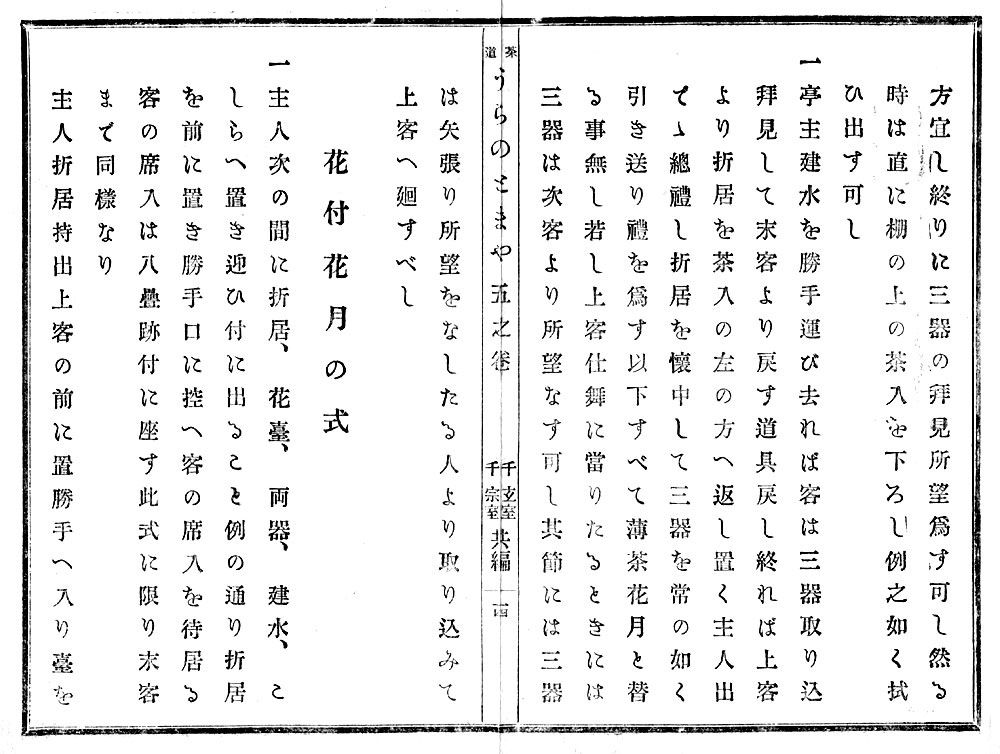 方宜し終りに三器の拜見所望爲す可し然る
時は直に棚の上の茶入を下ろし例之如く拭
ひ出す可し
一亭主建水を勝手運び去れば客は三器取り込
拜見して末客より戻す道具戻し終れば上客
より折居を茶入の左の方へ返し置く主人出
てゝ總禮し折居を懷中して三器を常の如く
引き送り禮を爲す以下すべて薄茶花月と替
る事無し若し上客仕舞に當りたるときには
三器は次客より所望なす可し其節には三器
茶道うらのとまや五之卷
千宗室
千玄室
共編
十四
は矢張り所望をなしたる人より取り込みて
上客へ廻すべし
花付花月の式
一主人次の間に折居、花臺、両器、建水、こ
しらへ置き迎ひ付に出ること例の通り折居
を前に置き勝手口に控へ客の席入を待居る
客の席入は八疊跡付に座す此式に限り末客
まで同樣なり
主人折居持出上客の前に置勝手へ入り臺を